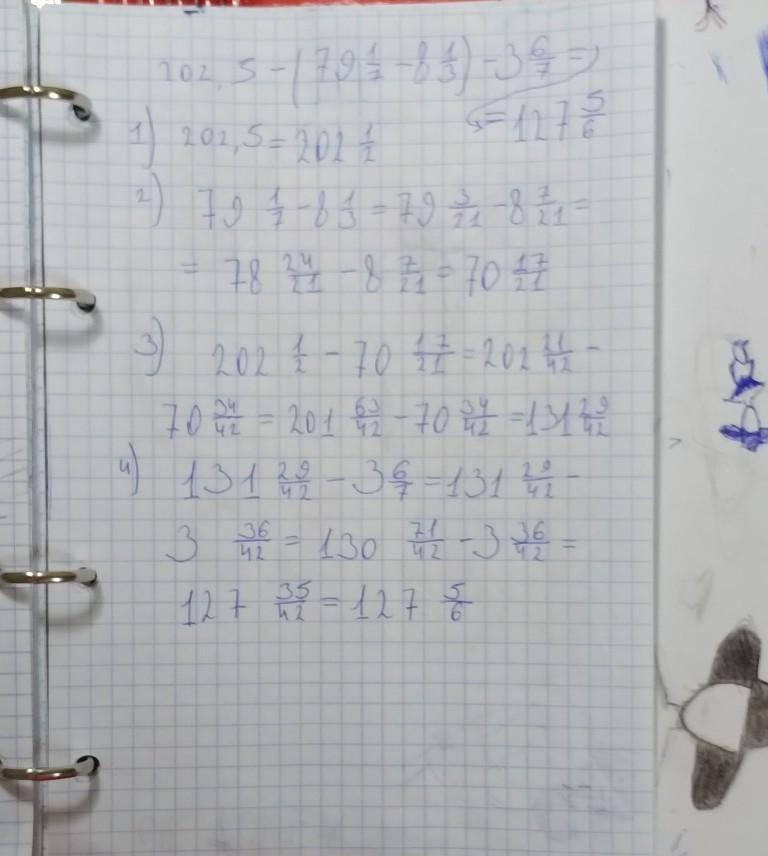 202,5 - (79 1/7 - 8 1/3) - 3 6/7 =
= 127 5/6
1) 202,5 = 202 1/2
2) 79 1/7 - 8 1/3 = 79 3/21 - 8 7/21 =
= 78 24/21 - 8 7/21 = 70 17/21
3) 202 1/2 - 70 17/21 = 202 21/42 -
70 34/42 = 201 63/42 - 70 34/42 = 131 29/42
4) 131 29/42 - 3 6/7 = 131 29/42 -
3 36/42 = 130 71/42 - 3 36/42 =
127 35/42 = 127 5/6